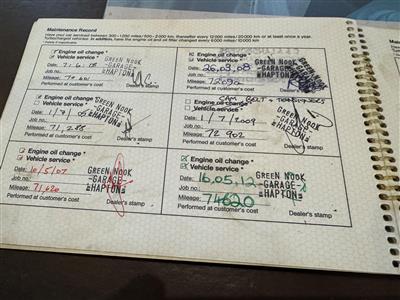 Maintenance Record
Engine oil change *
Vehicle service *
Date:
Job no.:
Mileage:
Performed at customer's cost
GREEN NOOK
-GARAGE-
HAPTON
Dealer's stamp
Engine oil change *
Vehicle service *
Date: 26.03.08
Job no.:
Mileage:
Performed at customer's cost
GREEN NOOK
-GARAGE-
HAPTON
Dealer's stamp
Engine oil change *
Vehicle service *
Date:
Job no.:
Mileage: 71,285
Performed at customer's cost
GREEN NOOK
-GARAGE-
HAPTON
Dealer's stamp
CAM BELT +
Engine oil change *
Vehicle service *
Date: 1/7/2009
Job no.:
Mileage: 72 902
Performed at customer's cost
GREEN NOOK
-GARAGE-
HAPTON
Dealer's stamp
Engine oil change *
Vehicle service *
Date: 10/5/07
Job no.:
Mileage: 71,620
Performed at customer's cost
GREEN NOOK
-GARAGE-
HAPTON
Dealer's stamp
Engine oil change *
Vehicle service *
Date: 16.05.12
Job no.:
Mileage: 74620
Performed at customer's cost
GREEN NOOK
-GARAGE-
HAPTON
Dealer's stamp